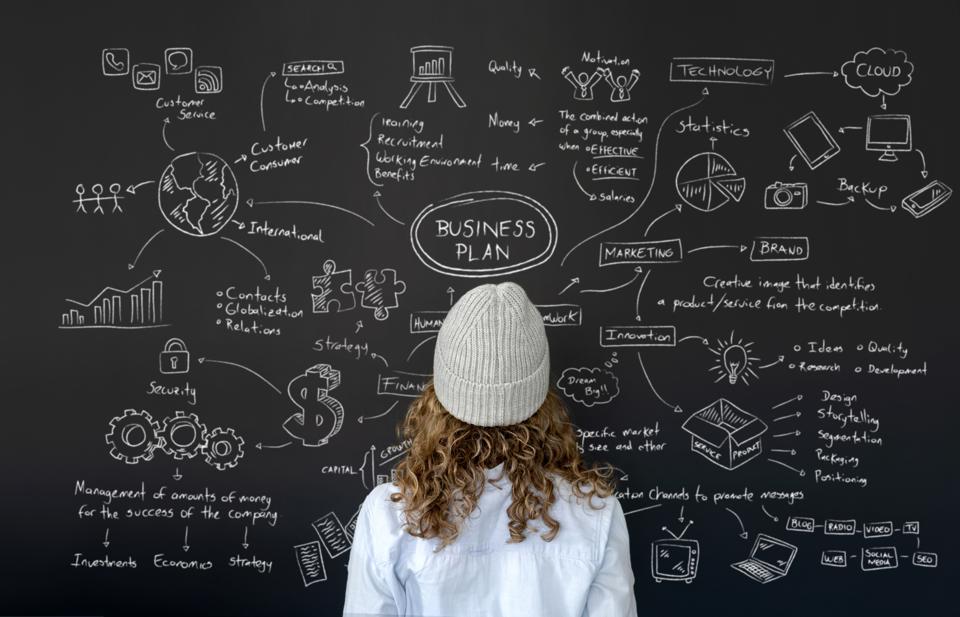 Customer
Service
SEARCH
Analysis
Competition
Customer
Consumer
International
Contacts
Globalization
Relations
learning
Recruitment
Working Environment
Benefits
Quality
Money
time
Motivation
The combined action
of a group, especially
when EFFECTIVE
EFFICIENT
Salaries
TECHNOLOGY
CLOUD
Statistics
Backup
BUSINESS
PLAN
MARKETING
BRAND
Creative image that identifies
a product/service from the competition.
HUMAN
Strategy
FINAN
Innovation
Dream
Big!!
Ideas Quality
Research Development
Security
$
SERVICE PRODUCT
Design
Storytelling
Segmentation
Packaging
Positioning
specific market
size and other
CAPITAL
GROWTH
Management of amounts of money
for the success of the company
Investments Economics strategy
channels to promote messages
BLOG RADIO VIDEO TV
WEB SOCIAL MEDIA SEO